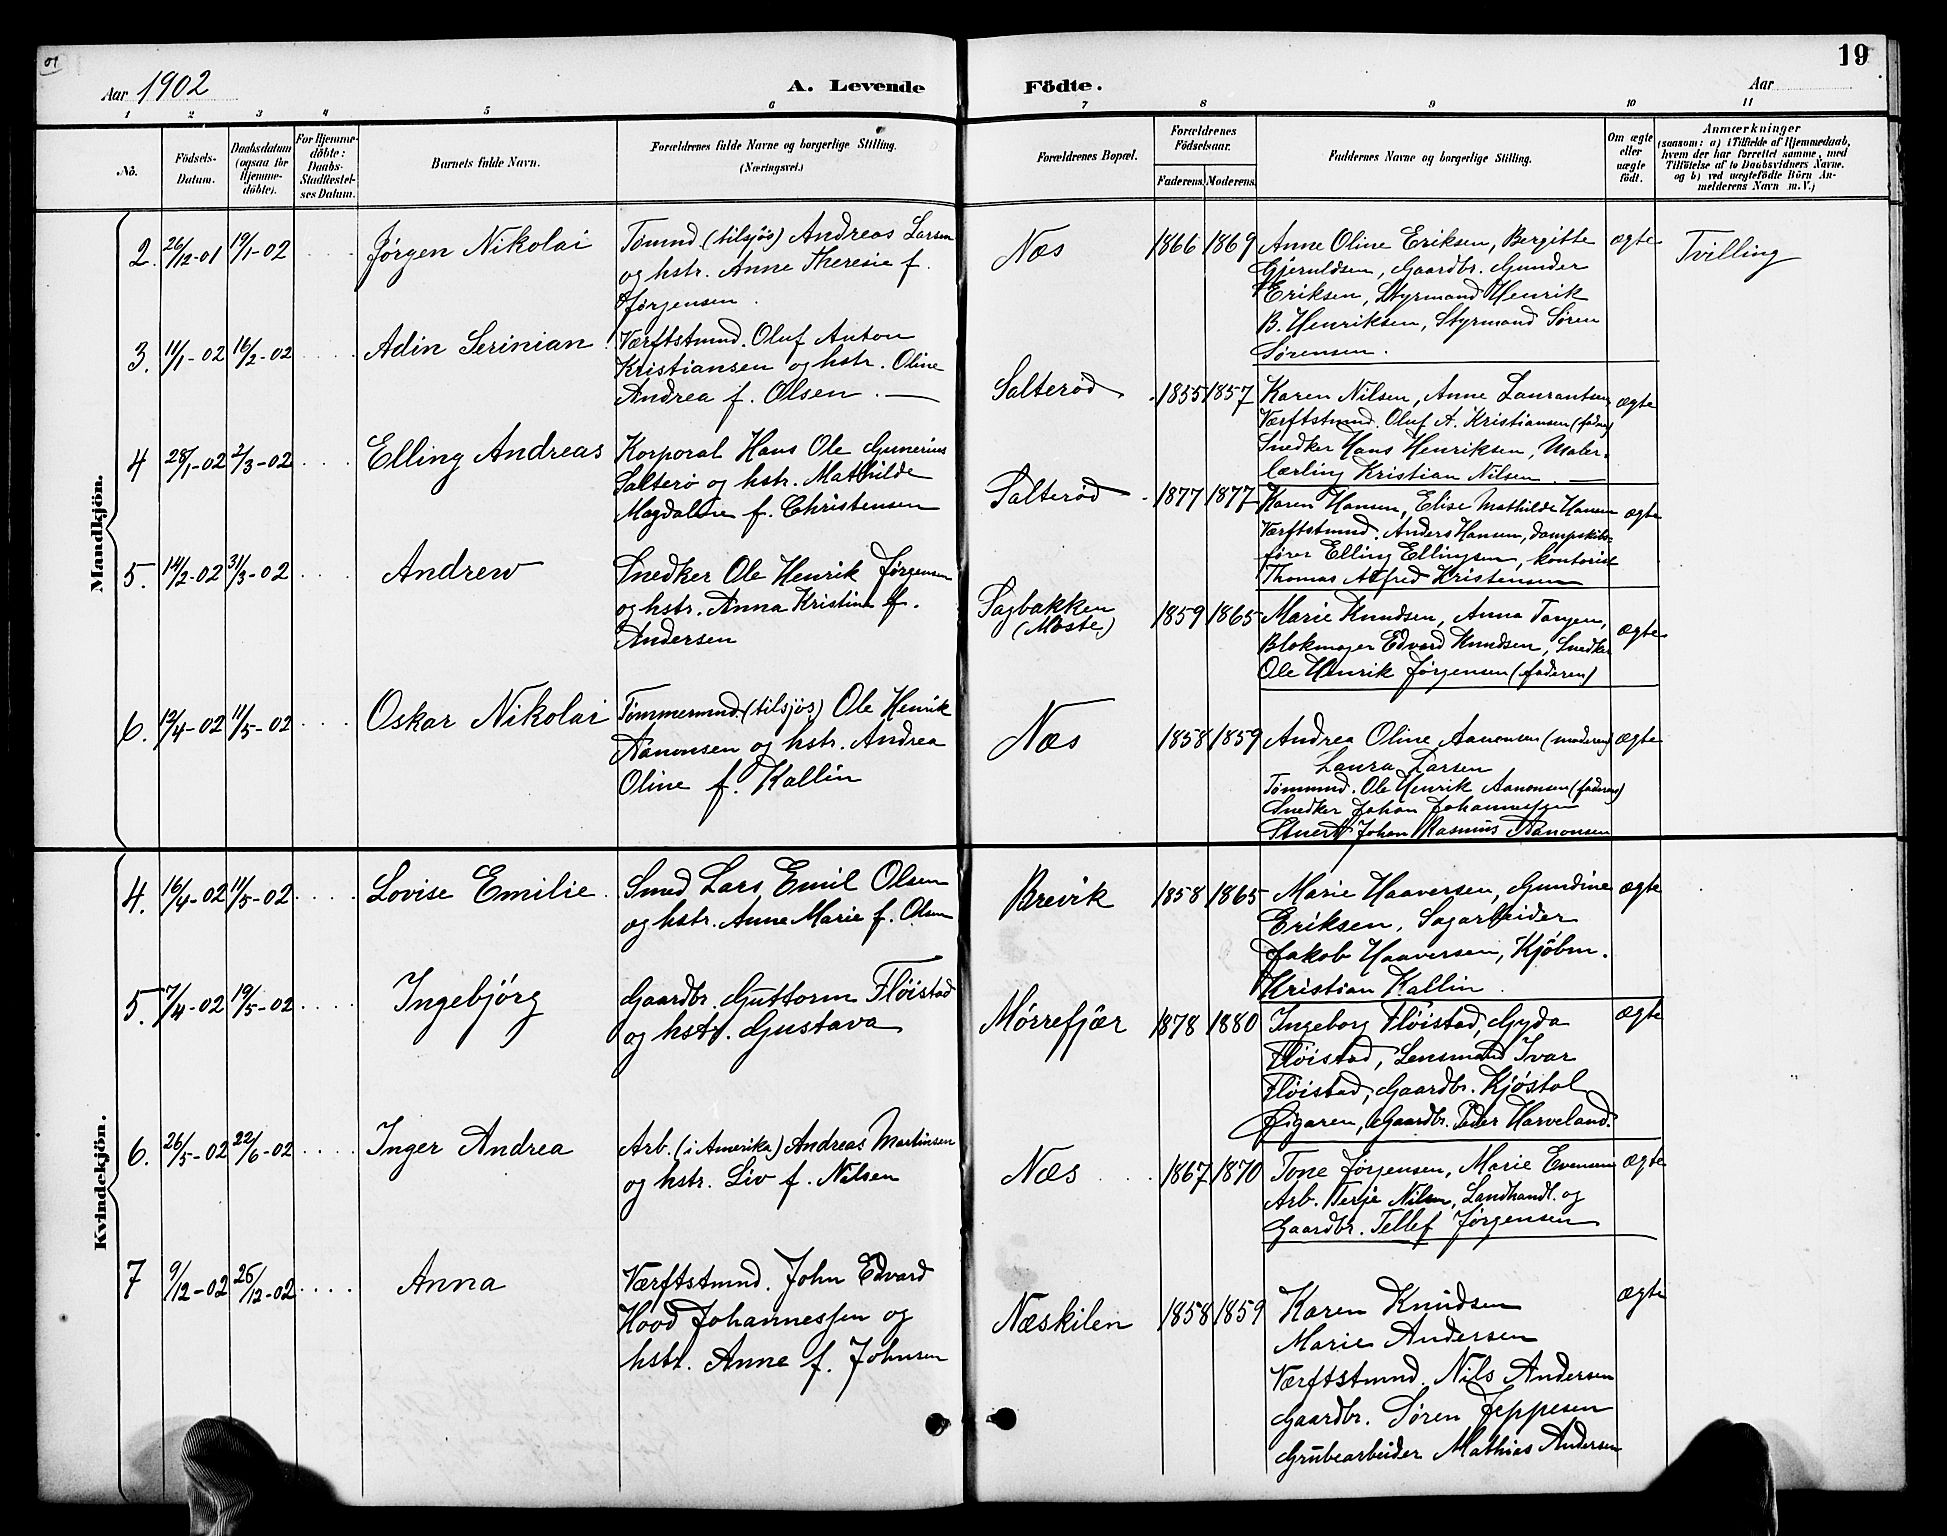 19
Aar 1902
A. Levende Födte.
Aar
1 2 3 4 5 6 7 8 9 10 11
No.
Födsels-Datum.
Daabsdatum (ogsaa for Hjemme-döbte).
For Hjemme-döbte: Daabs-Stadfæstel-ses Datum.
Barnets fulde Navn.
Forældrenes fulde Navne og borgerlige Stilling.
(Næringsvei.)
Forældrenes Bopæl.
Forældrenes Födselsaar.
Faderens. Moderens.
Faddernes Navne og borgerlige Stilling.
Om ægte eller uægte födt.
Anmærkninger
(saasom: a) i Tilfælde af Hjemmedaab,
hvem der har forrettet samme, med
Tilföielse af to Daabsvidners Navne.
og b) ved uægtefödte Börn An-
melderens Navn m. V.)
Mandkjön.
2. 26/12-01 19/1-02 Jørgen Nikolai
Tømmd (tilsjøs) Andreas Larsen
og hstr. Anne Theresie f.
Jørgensen.
Næs 1866 1869
Anne Oline Eriksen, Bergitte
Gjeruldsen, Gaardbr. Gunder
Eriksen, Styrmand Henrik
B. Henriksen, Styrmand Søren
Sørensen.
ægte
Tvilling
3. 11/1-02 16/2-02 Adin Serinian
Værftstmnd. Oluf Anton
Kristiansen og hstr. Oline
Andrea f. Olsen.
Salterød 1855 1857
Karen Nilsen, Anne Laurantsen
Værftstmnd. Oluf A. Kristiansen (fader)
Snedker Hans Henriksen, Maler-
lærling Kristian Nilsen.
ægte
4 28/1-02 2/3-02 Elling Andreas
Korporal Hans Ole Gunerius
Salterø og hstr. Mathilde
Magdalene f. Christensen
Salterød 1877 1877
Karen Hansen, Elise Mathilde Hansen
Værftstmnd. Anders Hansen, Dampskibs-
fører Elling Ellingsen, kontorist
Thomas Alfred Kristensen
ægte
5. 14/2-02 31/3-02 Andrew
Snedker Ole Henrik Jørgensen
og hstr. Anna Kristine f.
Andersen
Sagbakken
(Moste)
1859 1865
Marie Knudsen, Anna Tangen,
Blokmager Edvard Knudsen, Snedker
Ole Henrik Jørgensen (faderen)
ægte
6. 12/4-02 11/5-02 Oskar Nikolai
Tømmermnd. (tilsjøs) Ole Henrik
Aanonsen og hstr. Andrea
Oline f. Kallin
Næs 1858 1859
Andrea Oline Aanonsen (moderen)
Laura Larsen
Tømmnd. Ole Henrik Aanonsen (faderen)
Snedker Johan Johannessen
Stuert Johan Rasmus Aanonsen
ægte
Kvindekjön.
4. 16/4-02 11/5-02 Lovise Emilie
Smed Lars Emil Olsen
og hstr. Anne Marie f. Olsen
Brevik 1858 1865
Marie Haaversen, Gundine
Eriksen, Sagarbeider
Jakob Haaversen, Kjøbm.
Kristian Kallin.
ægte
5. 7/4-02 19/5-02 Ingebjörg
Gaardbr. Guttorm Fløistad
og hstr. Gustava
Mørrefjær 1878 1880
Ingeborg Fløistad, Gyda
Fløistad, Lensmand Ivar
Fløistad, Gaardbr. Kjøstol
Øigaren, Gaardbr. Peder Harveland.
ægte
6. 26/5-02 22/6-02 Inger Andrea
Arb. (i Amerika) Andreas Martinsen
og hstr. Liv f. Nilsen
Næs 1867 1870
Tone Jørgensen, Marie Evensen
Arb. Terje Nilsen, Landhandl. og
Gaardbr. Tellef Jørgensen
ægte
7 9/12-02 26/12-02 Anna
Værftstmnd. John Edvard
Hood Johannessen og
hstr. Anne f. Johnsen
Næskilen 1858 1859
Karen Knudsen
Marie Andersen
Værftstmnd. Nils Andersen
Gaardbr. Søren Jeppesen
Grubearbeider Mathias Andersen
ægte